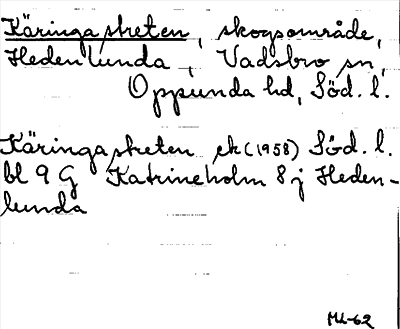 Käringastreten, skogsområde,
Hedenlunda, Vadsbro sn,
Oppunda hd, Söd. l.
Käringastreten ek (1958) Söd. l.
bl 9 G Katrineholm 8 j Heden-
lunda